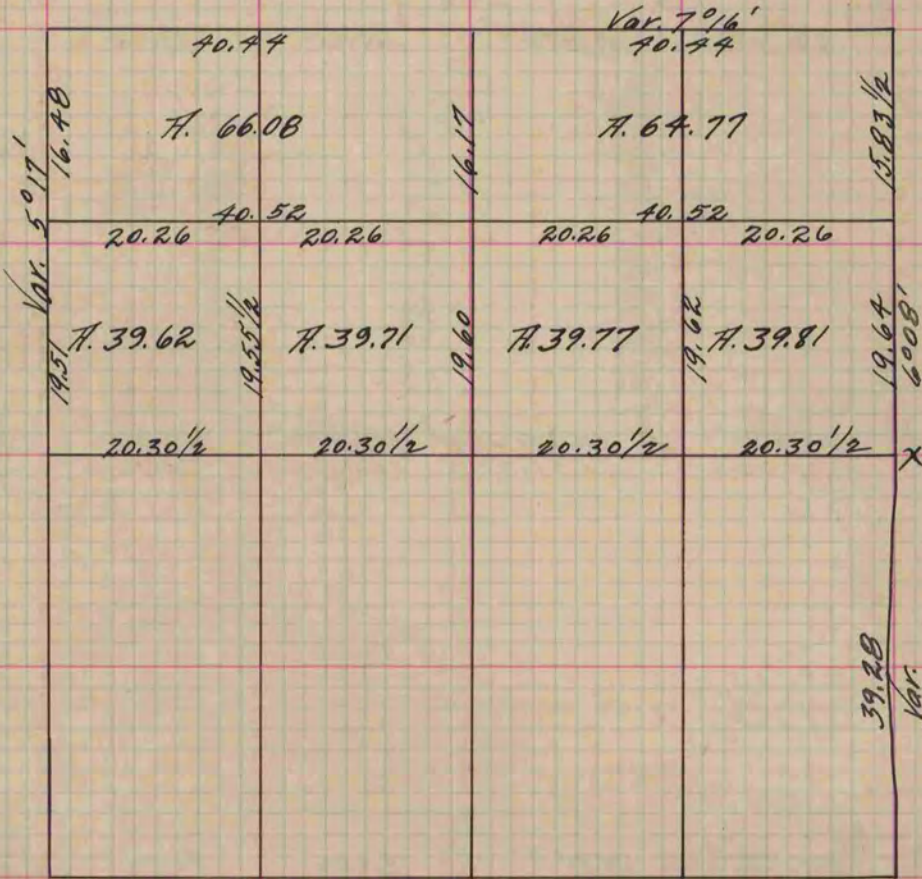 Var. 7°16'
40.44 40.44
16.48 A. 66.08 16.17 A. 64.77 15.83½
Var. 5°17'
40.52 40.52
20.26 20.26 20.26 20.26
19.51 A. 39.62 19.55½ A. 39.71 19.60 A. 39.77 19.62 A. 39.81 19.64
20.30½ 20.30½ 20.30½ 20.30½ X
39.28
Var. 6°08'